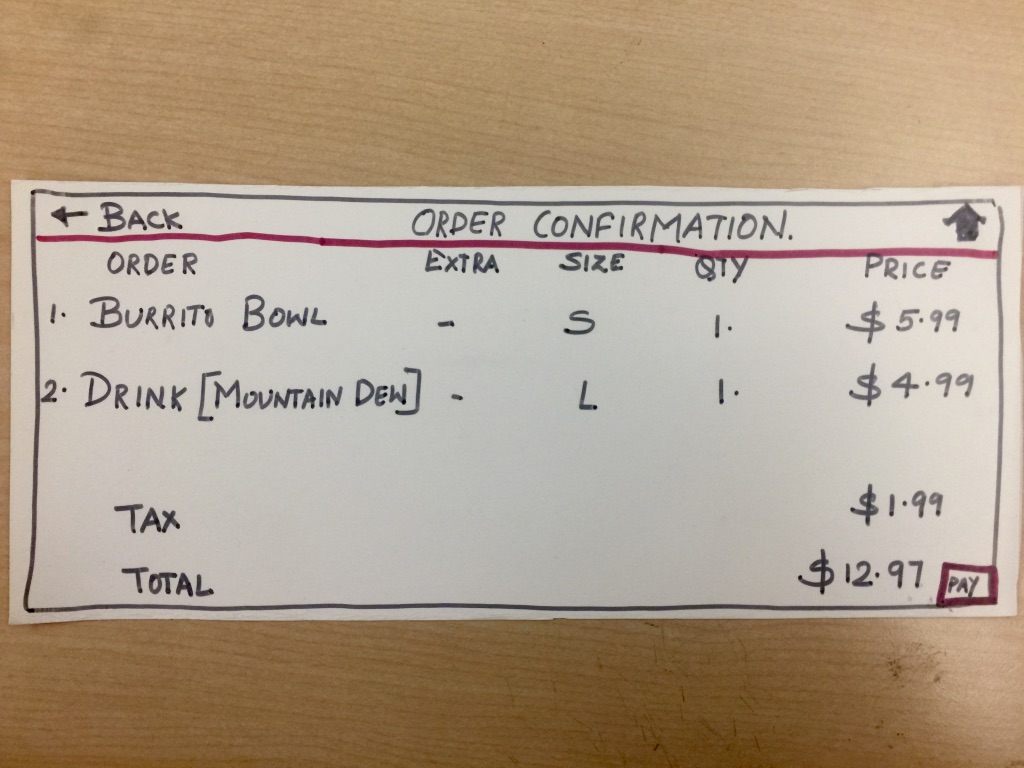 ← BACK ORDER CONFIRMATION.
ORDER EXTRA SIZE QTY PRICE
1. BURRITO BOWL - S 1. $5.99
2. DRINK [MOUNTAIN DEW] - L 1. $4.99
TAX $1.99
TOTAL $12.97 PAY